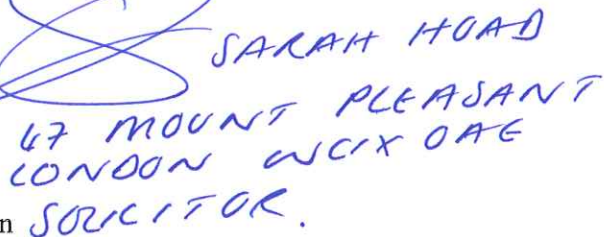 SARAH HOAD
47 MOUNT PLEASANT
LONDON WC1X 0AE
n SOLICITOR.